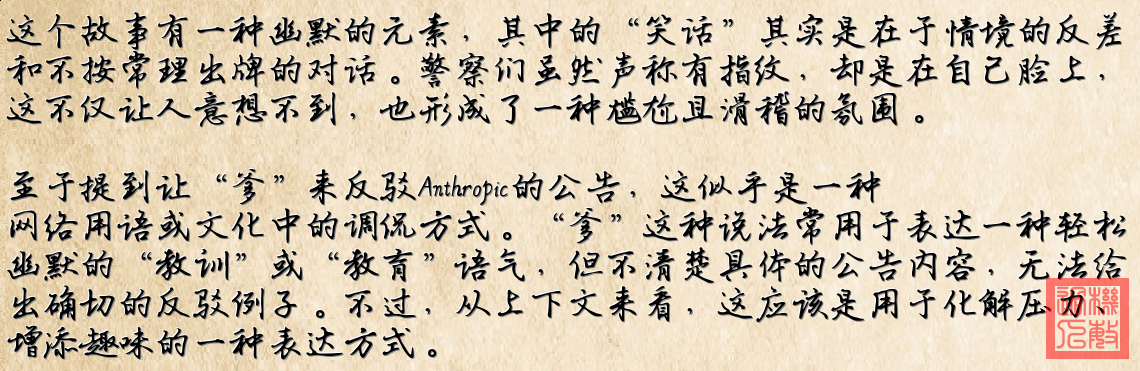 这个故事有一种幽默的元素，其中的“笑话”其实是在于情境的反差
和不按常理出牌的对话。警察们虽然声称有指纹，却是在自己脸上，
这不仅让人意想不到，也形成了一种尴尬且滑稽的氛围。
至于提到让“爹”来反驳Anthropic的公告，这似乎是一种
网络用语或文化中的调侃方式。“爹”这种说法常用于表达一种轻松
幽默的“教训”或“教育”语气，但不清楚具体的公告内容，无法给
出确切的反驳例子。不过，从上下文来看，这应该是用于化解压力、
增添趣味的一种表达方式。